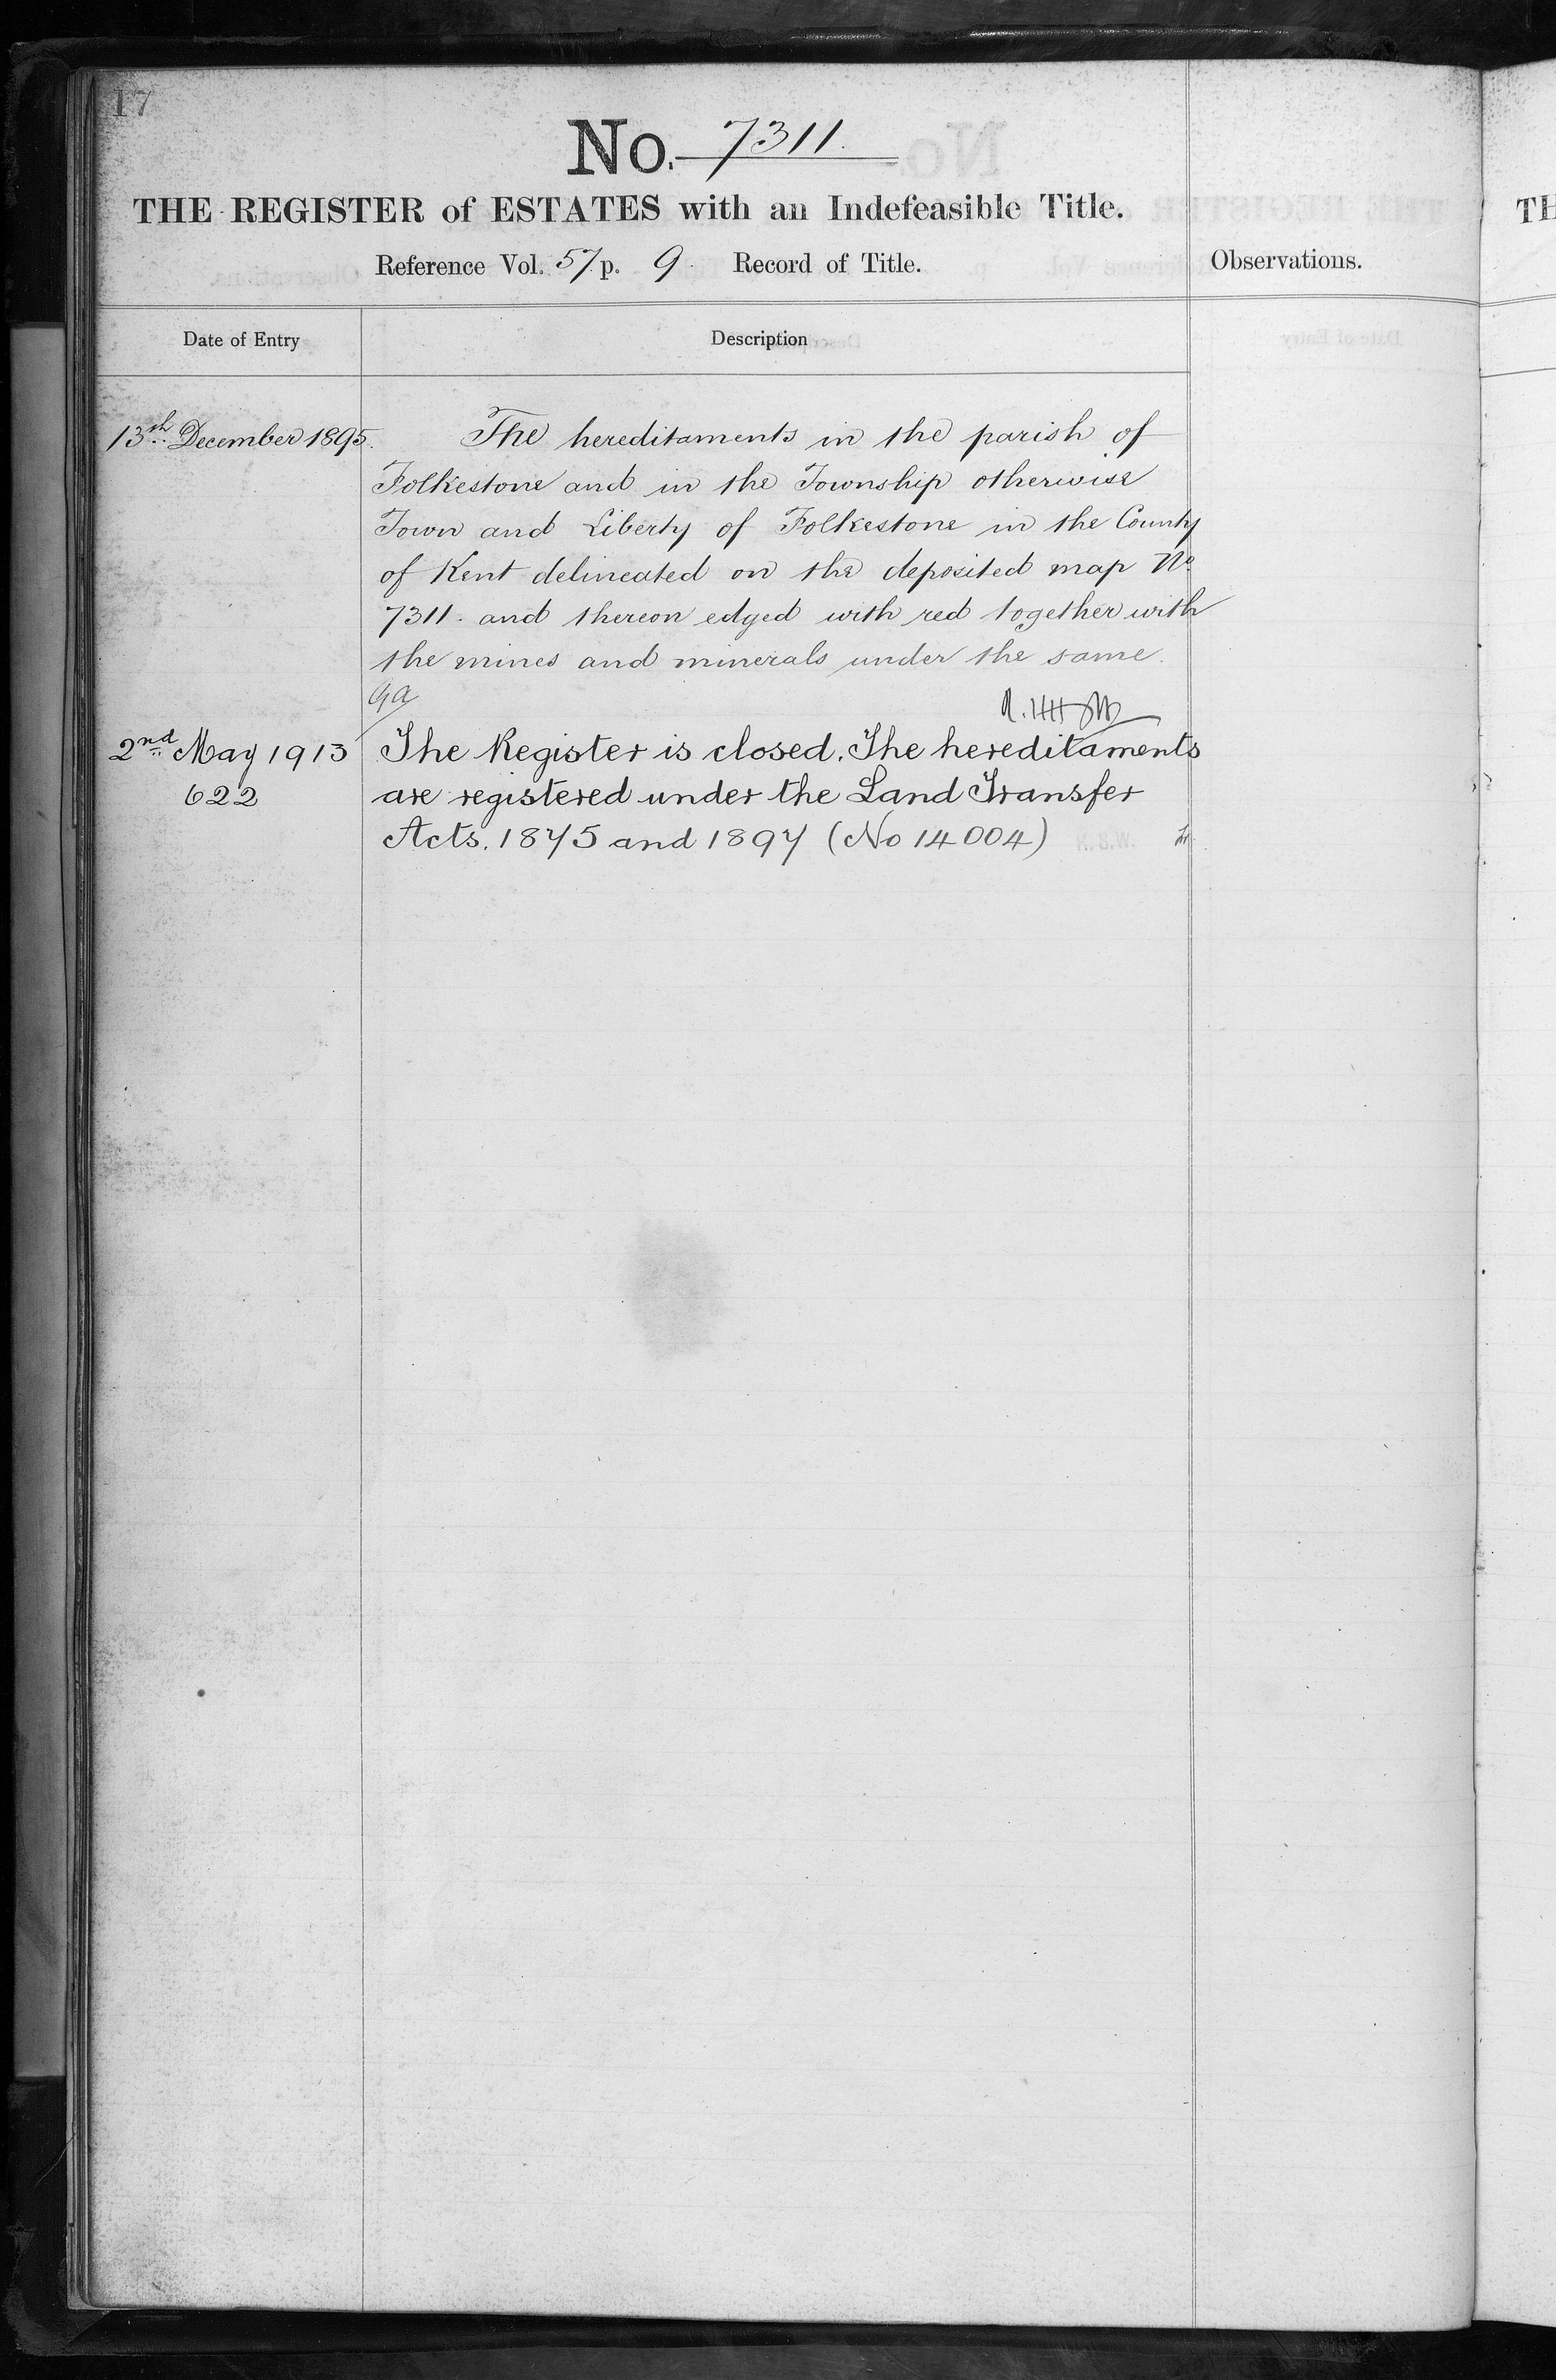 17
No. 7311.
THE REGISTER of ESTATES with an Indefeasible Title.
Reference Vol. 57 p. 9 Record of Title.
Observations.
Date of Entry
Description
13th December 1895.
The hereditaments in the parish of
Folkestone and in the Township otherwise
Town and Liberty of Folkestone in the County
of Kent delineated on the deposited map No
7311. and thereon edged with red together with
the mines and minerals under the same.
2nd May 1913
622
The Register is closed. The hereditaments
are registered under the Land Transfer
Acts. 1875 and 1897 (No 14004)
TH